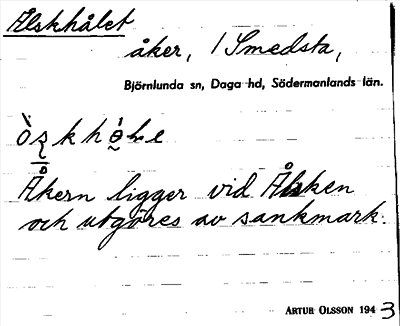 Ålskhålet
åker, / Smedsta,
Björnlunda sn, Daga hd, Södermanlands län.
Åkern ligger vid Ålsken
och utgöres av sankmark.
ARTUR OLSSON 1943